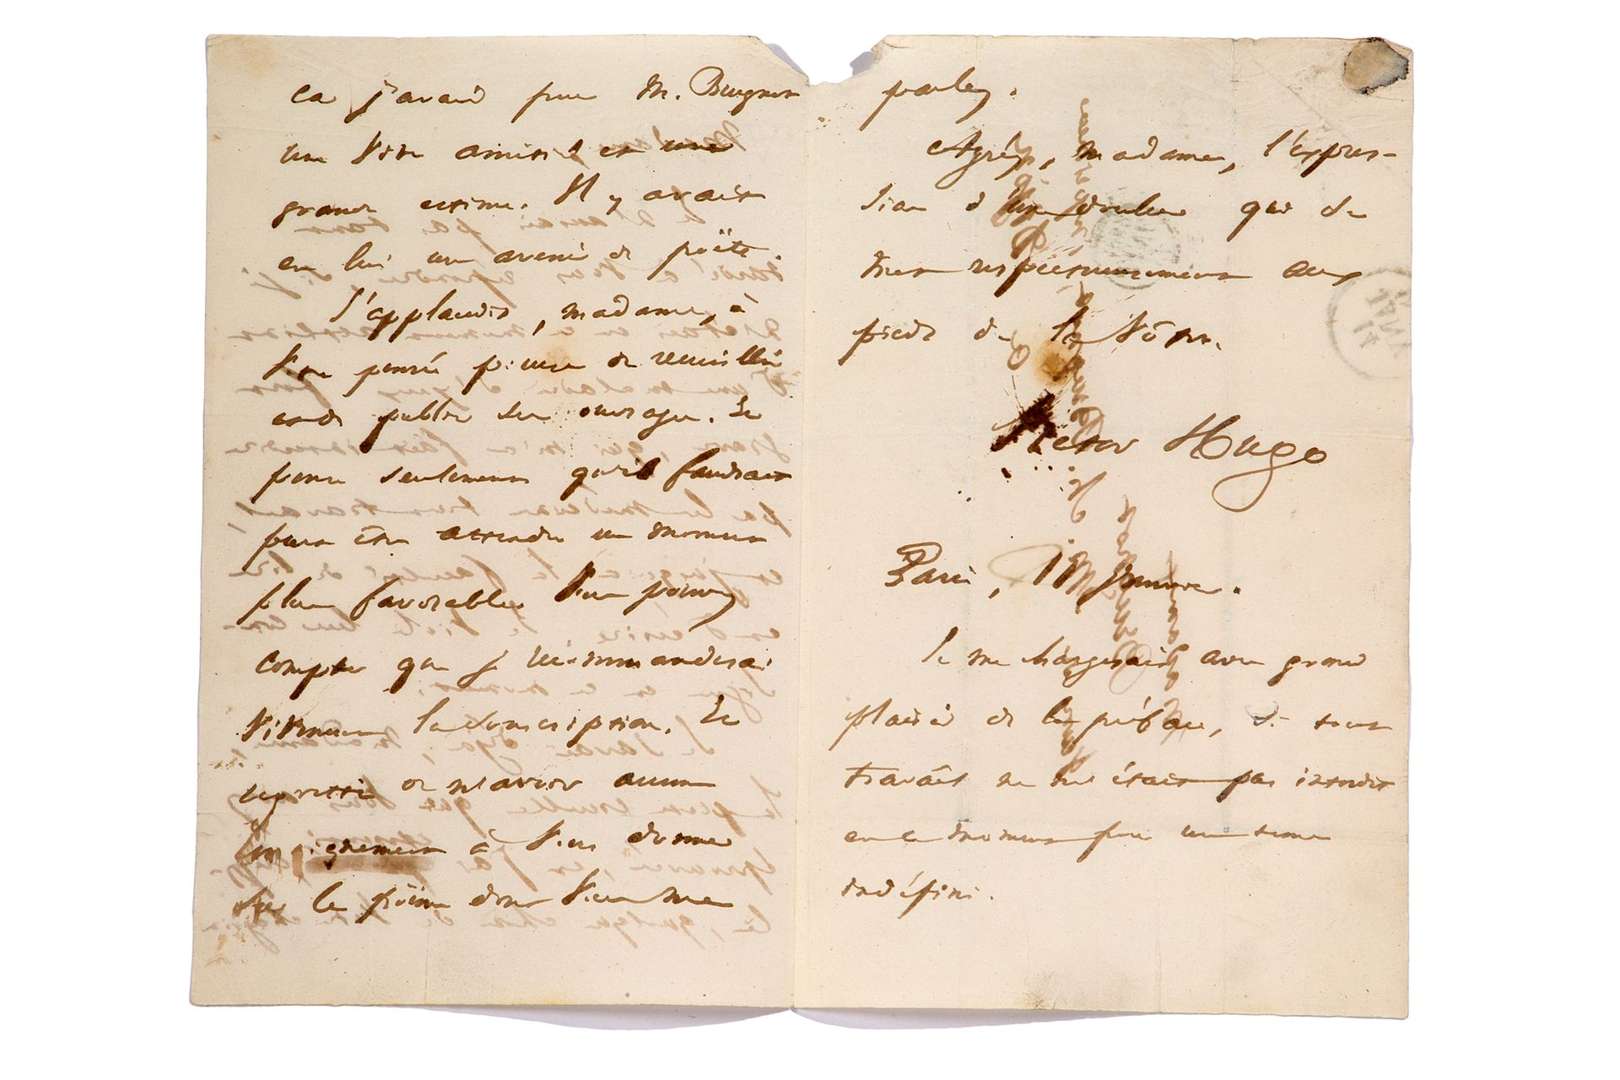 ca j'avais pour M. Buignon
une vive amitié et une
grande estime. Il y avait
en lui un avenir de poëte.
J'applaudis, madame, à
votre pensée pieuse de recueillir
et de publier ses ouvrages. Je
pense seulement qu'il faudrait
peut être attendre un moment
plus favorable. Vous pouvez
compter que je recommanderai
vivement la souscription. Je
regrette de n'avoir aucun
renseignement à vous donner
sur le poëme dont vous me
parlez.
Agréez, madame, l'expres-
sion d'une douleur qui se
met respectueusement aux
pieds de la vôtre.
Victor Hugo
Paris, 17 janvier.
Je me chargerais avec grand
plaisir de la préface, si tout
travail ne m'était pas interdit
en ce moment pour un tems
indéfini.